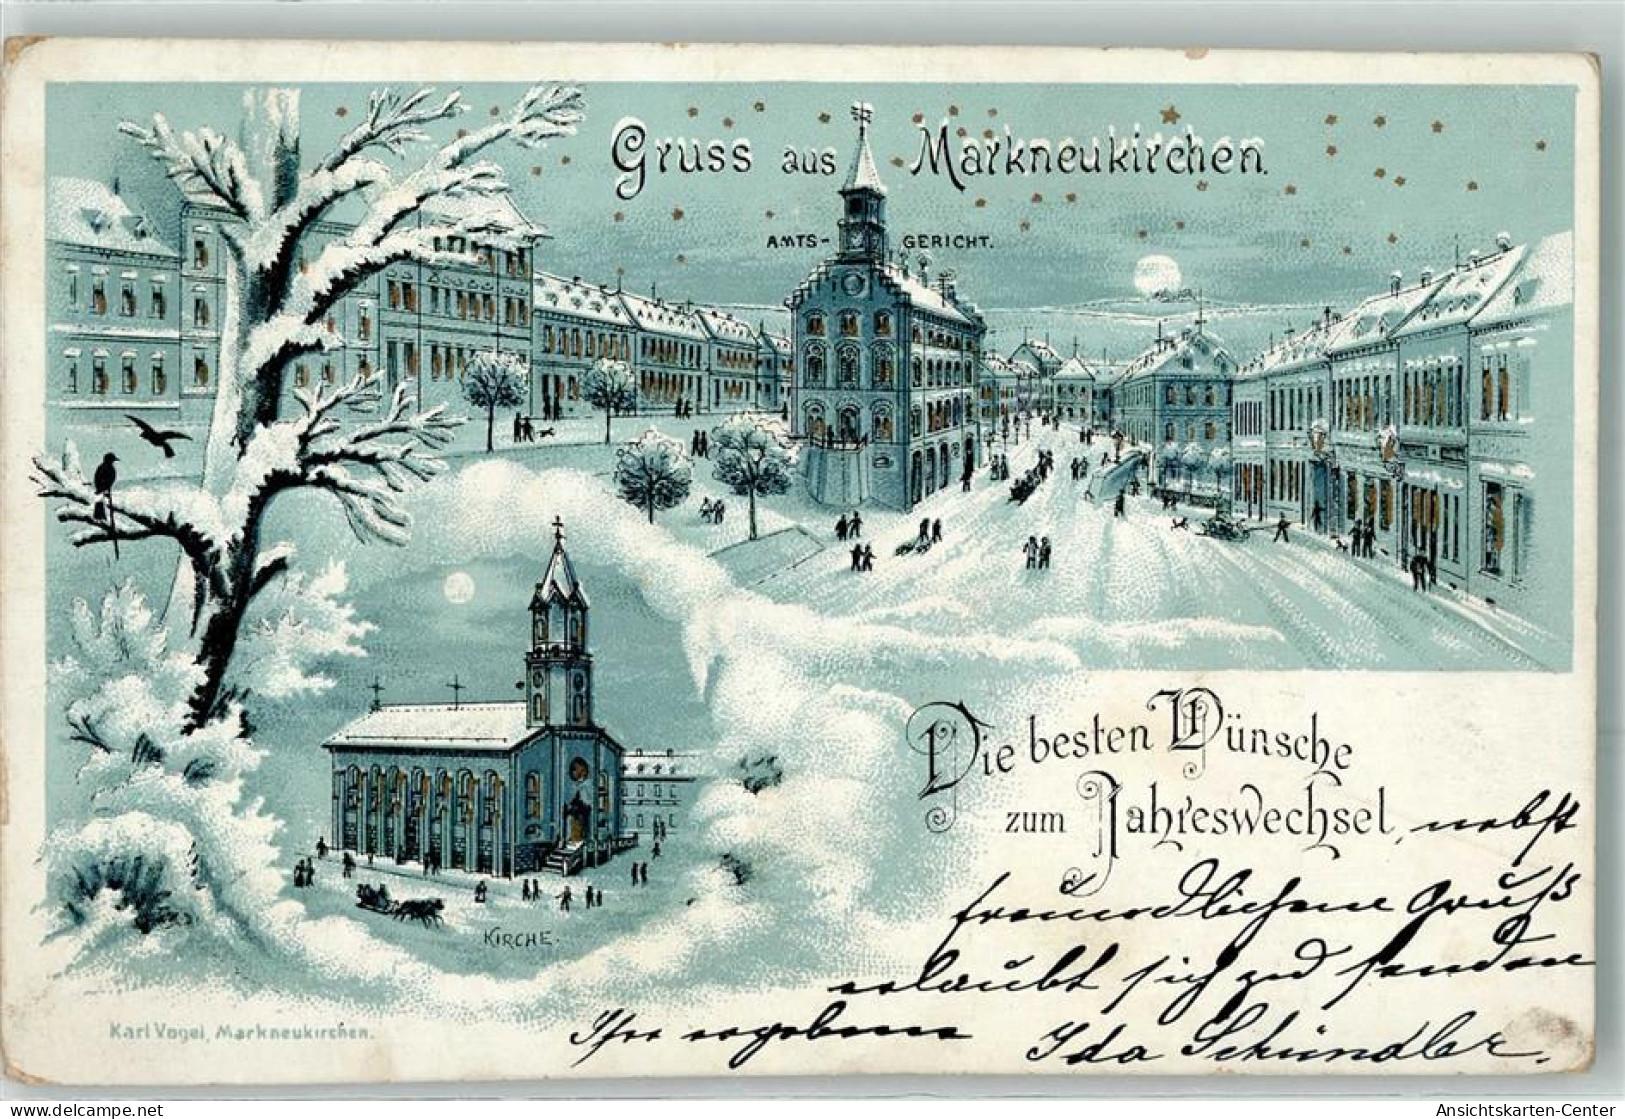 Gruss aus Markneukirchen.
AMTS- GERICHT.
Die besten Wünsche
zum Jahreswechsel, nebst
freundlichem Gruß
erlaubt sich zu senden
Ihre ergebene Ida Schündler.
KIRCHE.
Karl Vogel, Markneukirchen.
www.delcampe.net
Ansichtskarten-Center